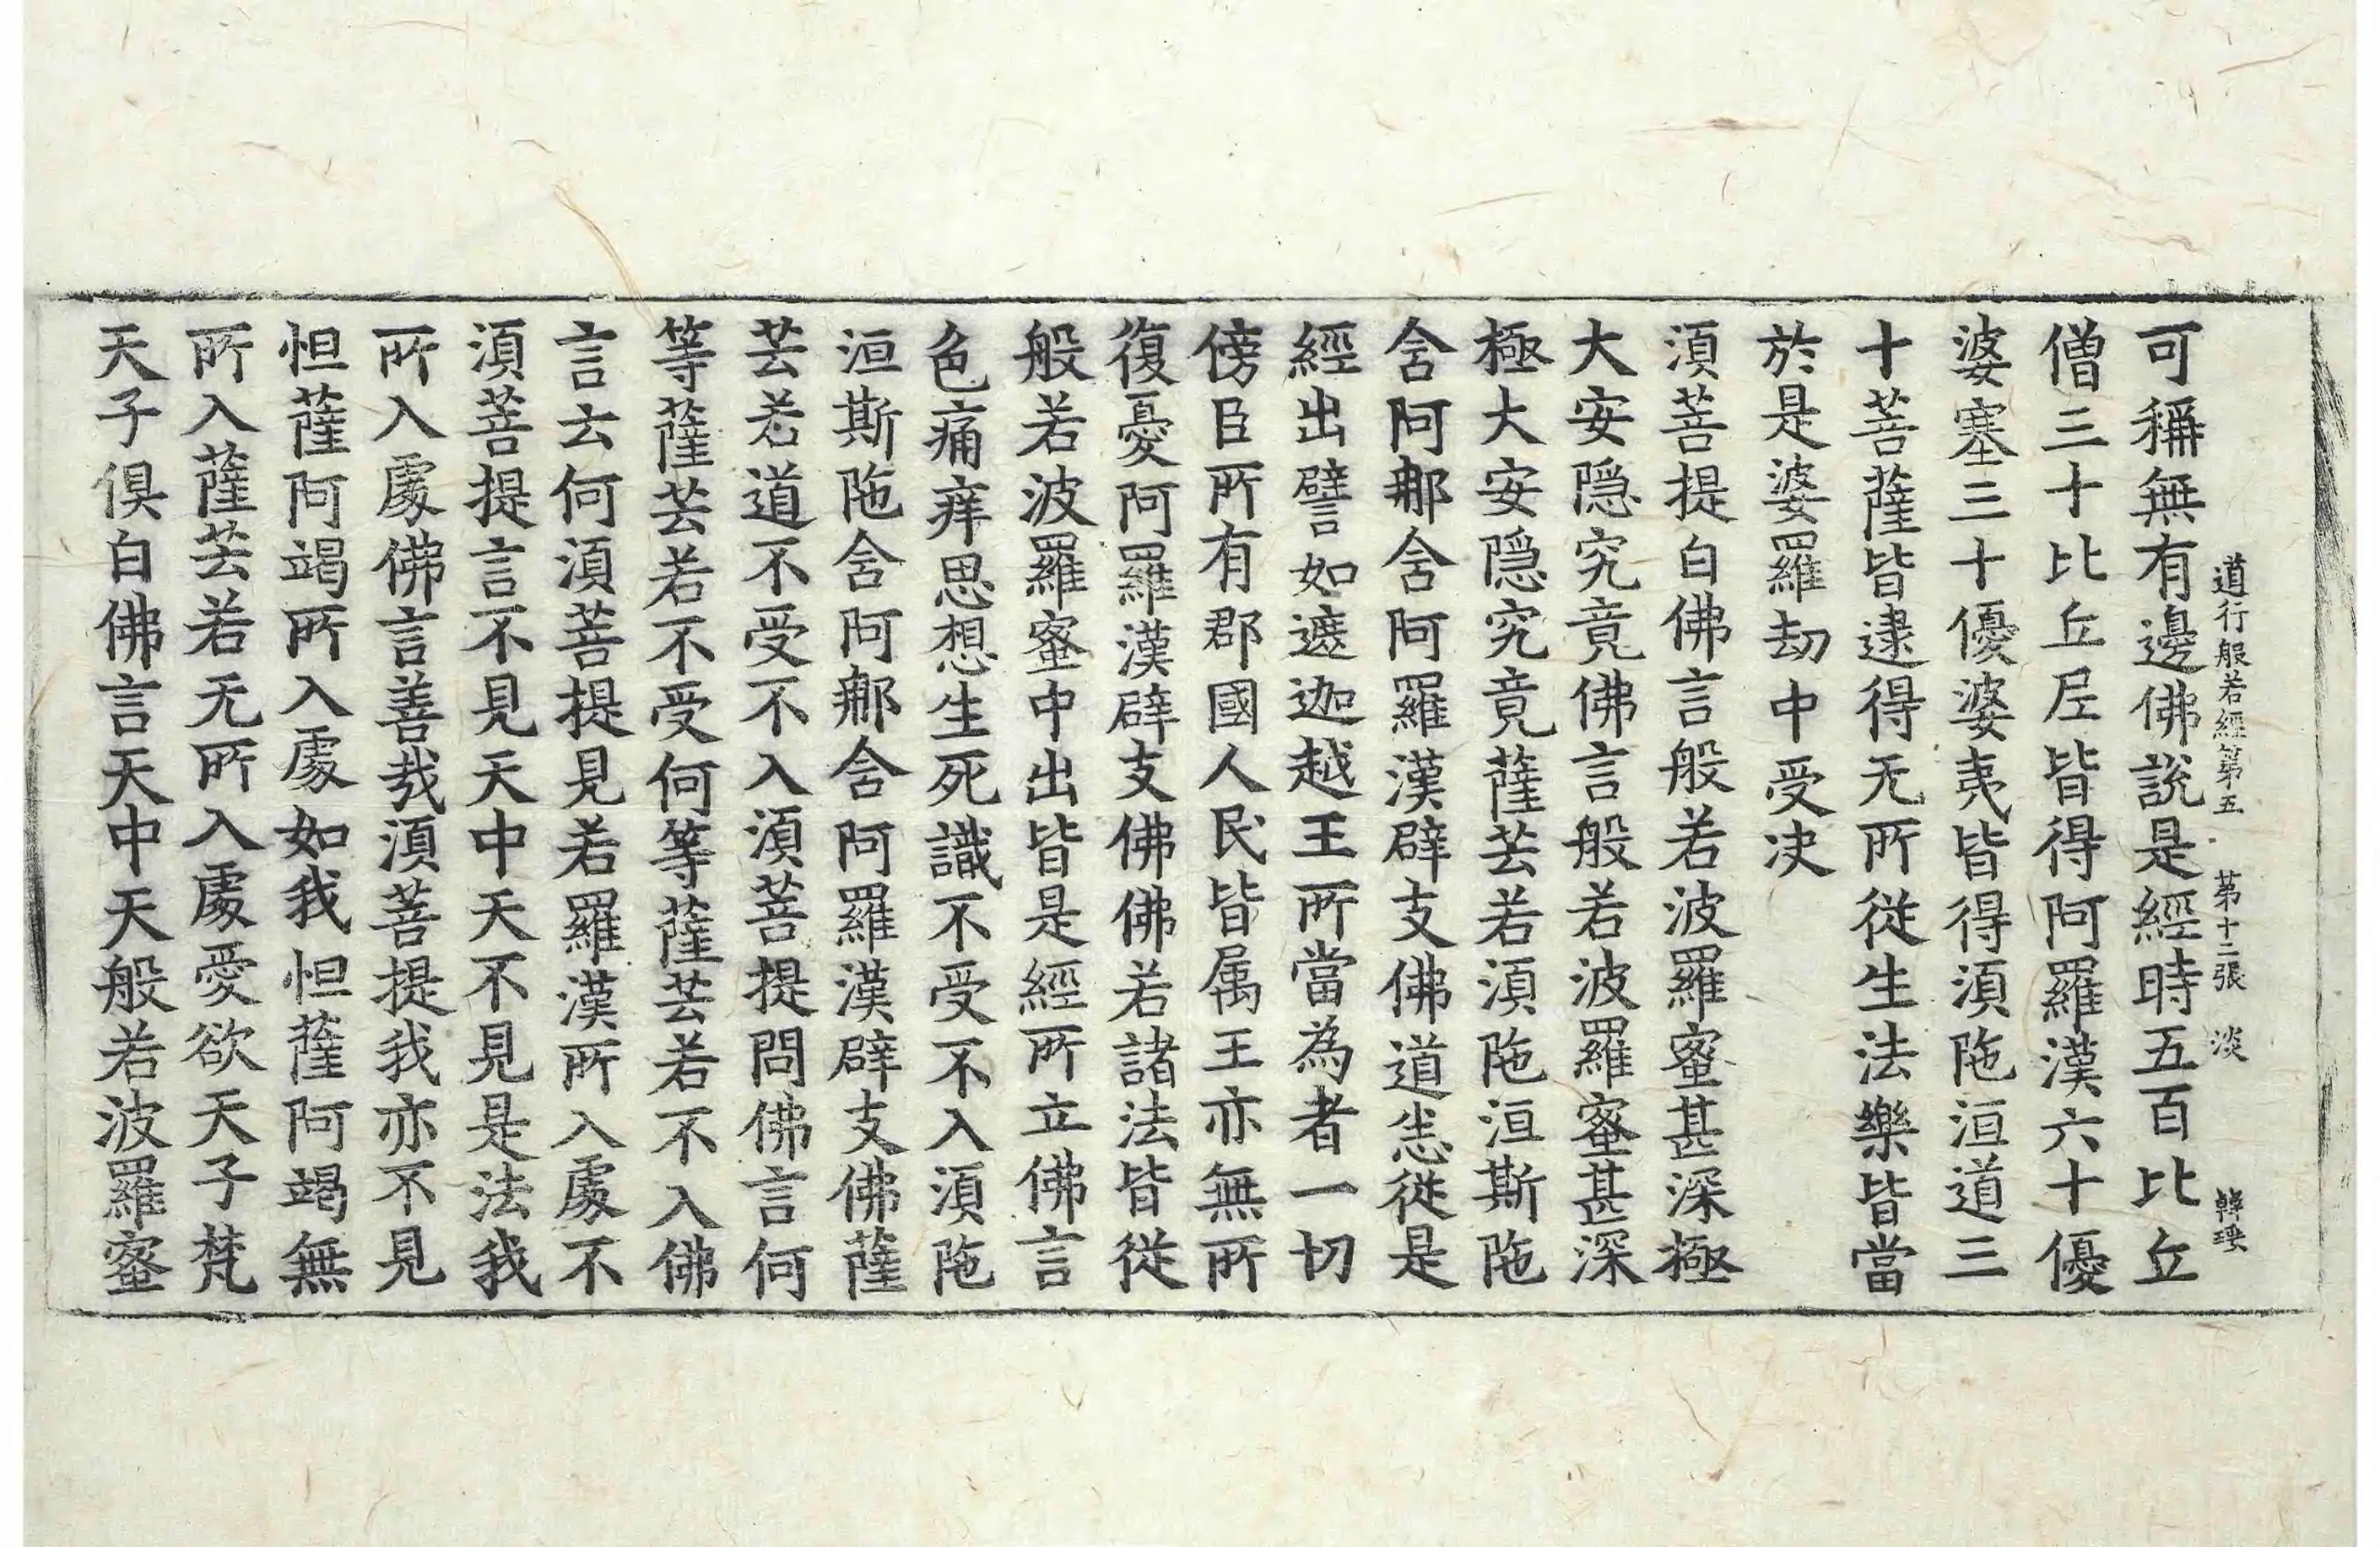 道行般若經第五 第十二張 淡
可稱無有邊佛說是經時五百比丘
僧三十比丘尼皆得阿羅漢六十優
婆塞三十優婆夷皆得湏陁洹道三
十菩薩皆逮得无所從生法樂皆當
於是婆羅劫中受决
湏菩提白佛言般若波羅蜜甚深極
大安隱究竟佛言般若波羅蜜甚深
極大安隱究竟薩芸若湏陁洹斯陁
含阿那含阿羅漢辟支佛道悉從是
經出譬如遮迦越王所當為者一切
傍臣所有郡國人民皆属王亦無所
復憂阿羅漢辟支佛佛若諸法皆從
般若波羅蜜中出皆是經所立佛言
色痛痒思想生死識不受不入湏陁
洹斯陁含阿那含阿羅漢辟支佛薩
芸若道不受不入湏菩提問佛言何
等薩芸若不受何等薩芸若不入佛
言云何湏菩提見若羅漢所入處不
湏菩提言不見天中天不見是法我
所入處佛言善哉湏菩提我亦不見
怛薩阿竭所入處如我怛薩阿竭無
所入薩芸若无所入處愛欲天子梵
天子俱白佛言天中天般若波羅蜜